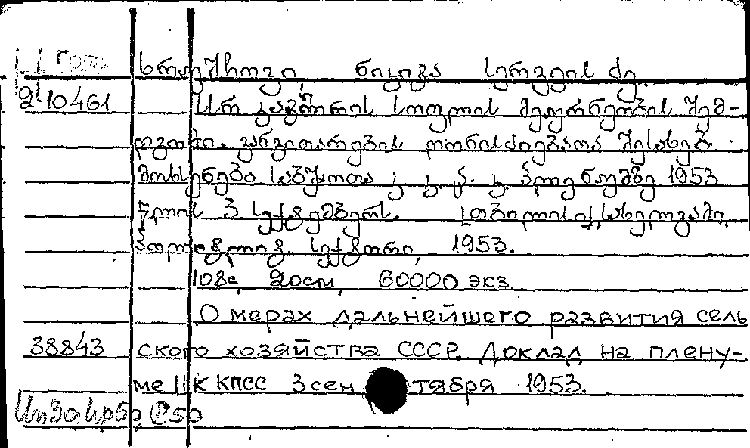 ხრუშჩოვი, ნიკიტა სერგეის ძე.
2-10461 სსრ კავშირის სოფლის მეურნეობის შემ-
დგომი განვითარების ღონისძიებათა შესახებ.
მოხსენება საბჭოთა კ. კ. პ. ც. პლენუმზე 1953
წლის 3 სექტემბერს. სახელგამი,
პოლიტლიტ. სექტორი, 1953.
108с, 20см, 60000 экз.
О мерах дальнейшего развития сель
38843 ского хозяйства СССР. Доклад на плену-
ме ЦК КПСС 3 сен тября 1953.